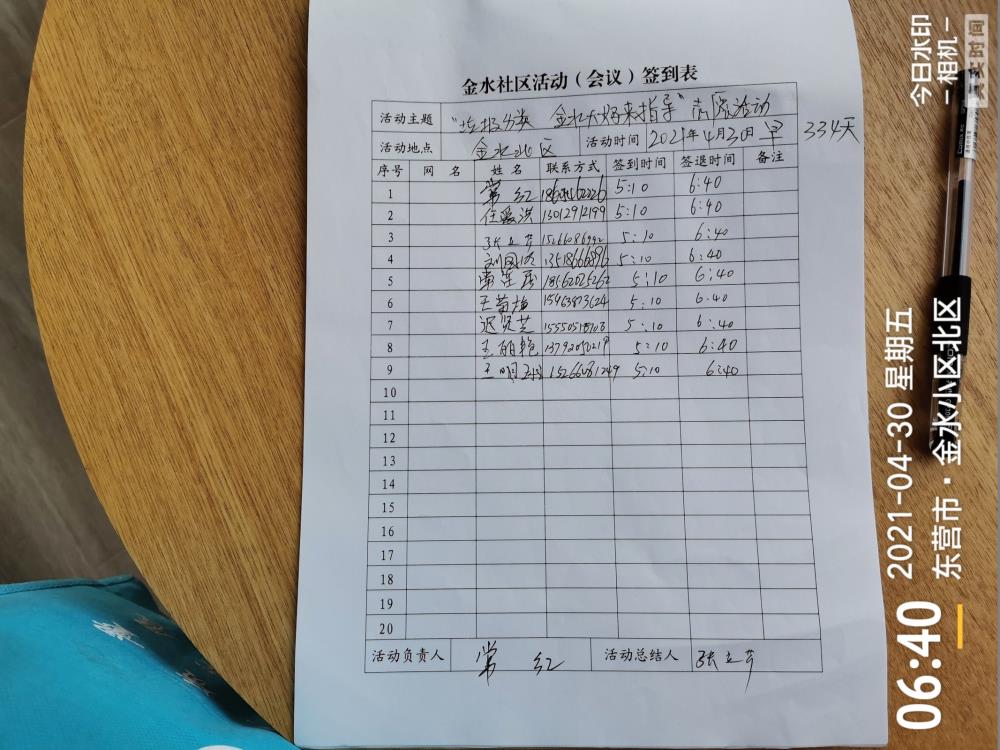 金水社区活动（会议）签到表
活动主题 "垃圾分类 金水大妈来指导" 志愿活动
活动地点 金水北区 活动时间 2021年4月30日 早 334天
序号 网 名 姓 名 联系方式 签到时间 签退时间 备注
1 常 红 5:10 6:40
2 任爱洪 13012912199 5:10 6:40
3 张立芹 5:10 6:40
4 13518666896 5:10 6:40
5 18562025262 5:10 6:40
6 王菊梅 15963873624 5:10 6:40
7 迟贤芝 5:10 6:40
8 王丽艳 5:10 6:40
9 王明 15266081249 5:10 6:40
10
11
12
13
14
15
16
17
18
19
20
活动负责人 常 红 活动总结人 张立芹
06:40
2021-04-30 星期五
东营市·金水小区北区
今日水印
-相机-
真实时间